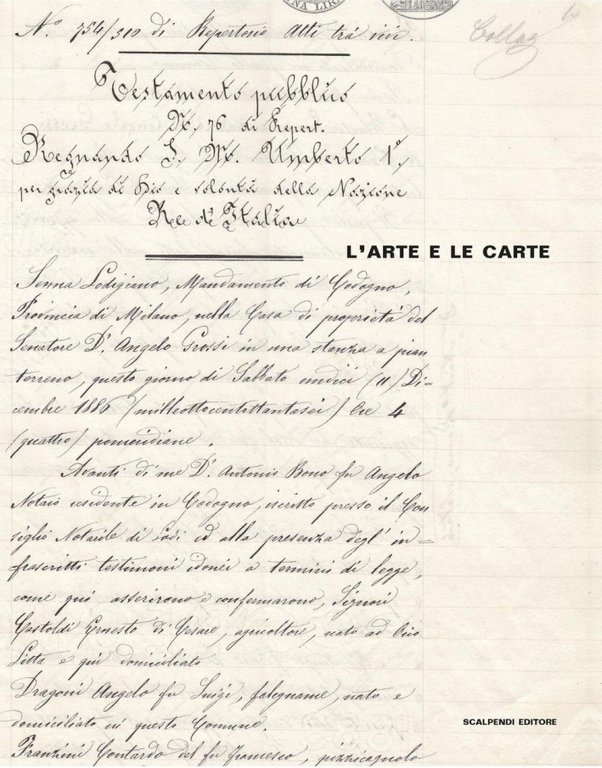 NA LIR
N.º 754/510 di Repertorio Atti trà vivi.
Collaz
Testamento pubblico
N. 76 di Repert.
Regnando S. M. Umberto 1º
per grazia di Dio e volontà della Nazione
Re d'Italia
L'ARTE E LE CARTE
Senna Lodigiano, Mandamento di Codogno,
Provincia di Milano, nella Casa di proprietà del
Senatore Dr. Angelo Grossi in una stanza a pian
terreno, questo giorno di Sabbato undici (11) Di=
cembre 1886 (milleottocentottantasei) Ore 4
(quattro) pomeridiane.
Avanti di me Dr. Antonio Bono fu Angelo
Notaio residente in Codogno, iscritto presso il Con
siglio Notarile di Lodi ed alla presenza degl' in=
frascritti testimoni idonei a termini di legge,
come quì asserirono e confermarono, Signori
Castoldi Ernesto di Cesare, agricoltore, nato ad Orio
Litta e quì domiciliato
Dragoni Angelo fu Luigi, falegname, nato e
domiciliato in questo Comune.
Franzini Contardo del fu Francesco, pizzicagnolo
SCALPENDI EDITORE